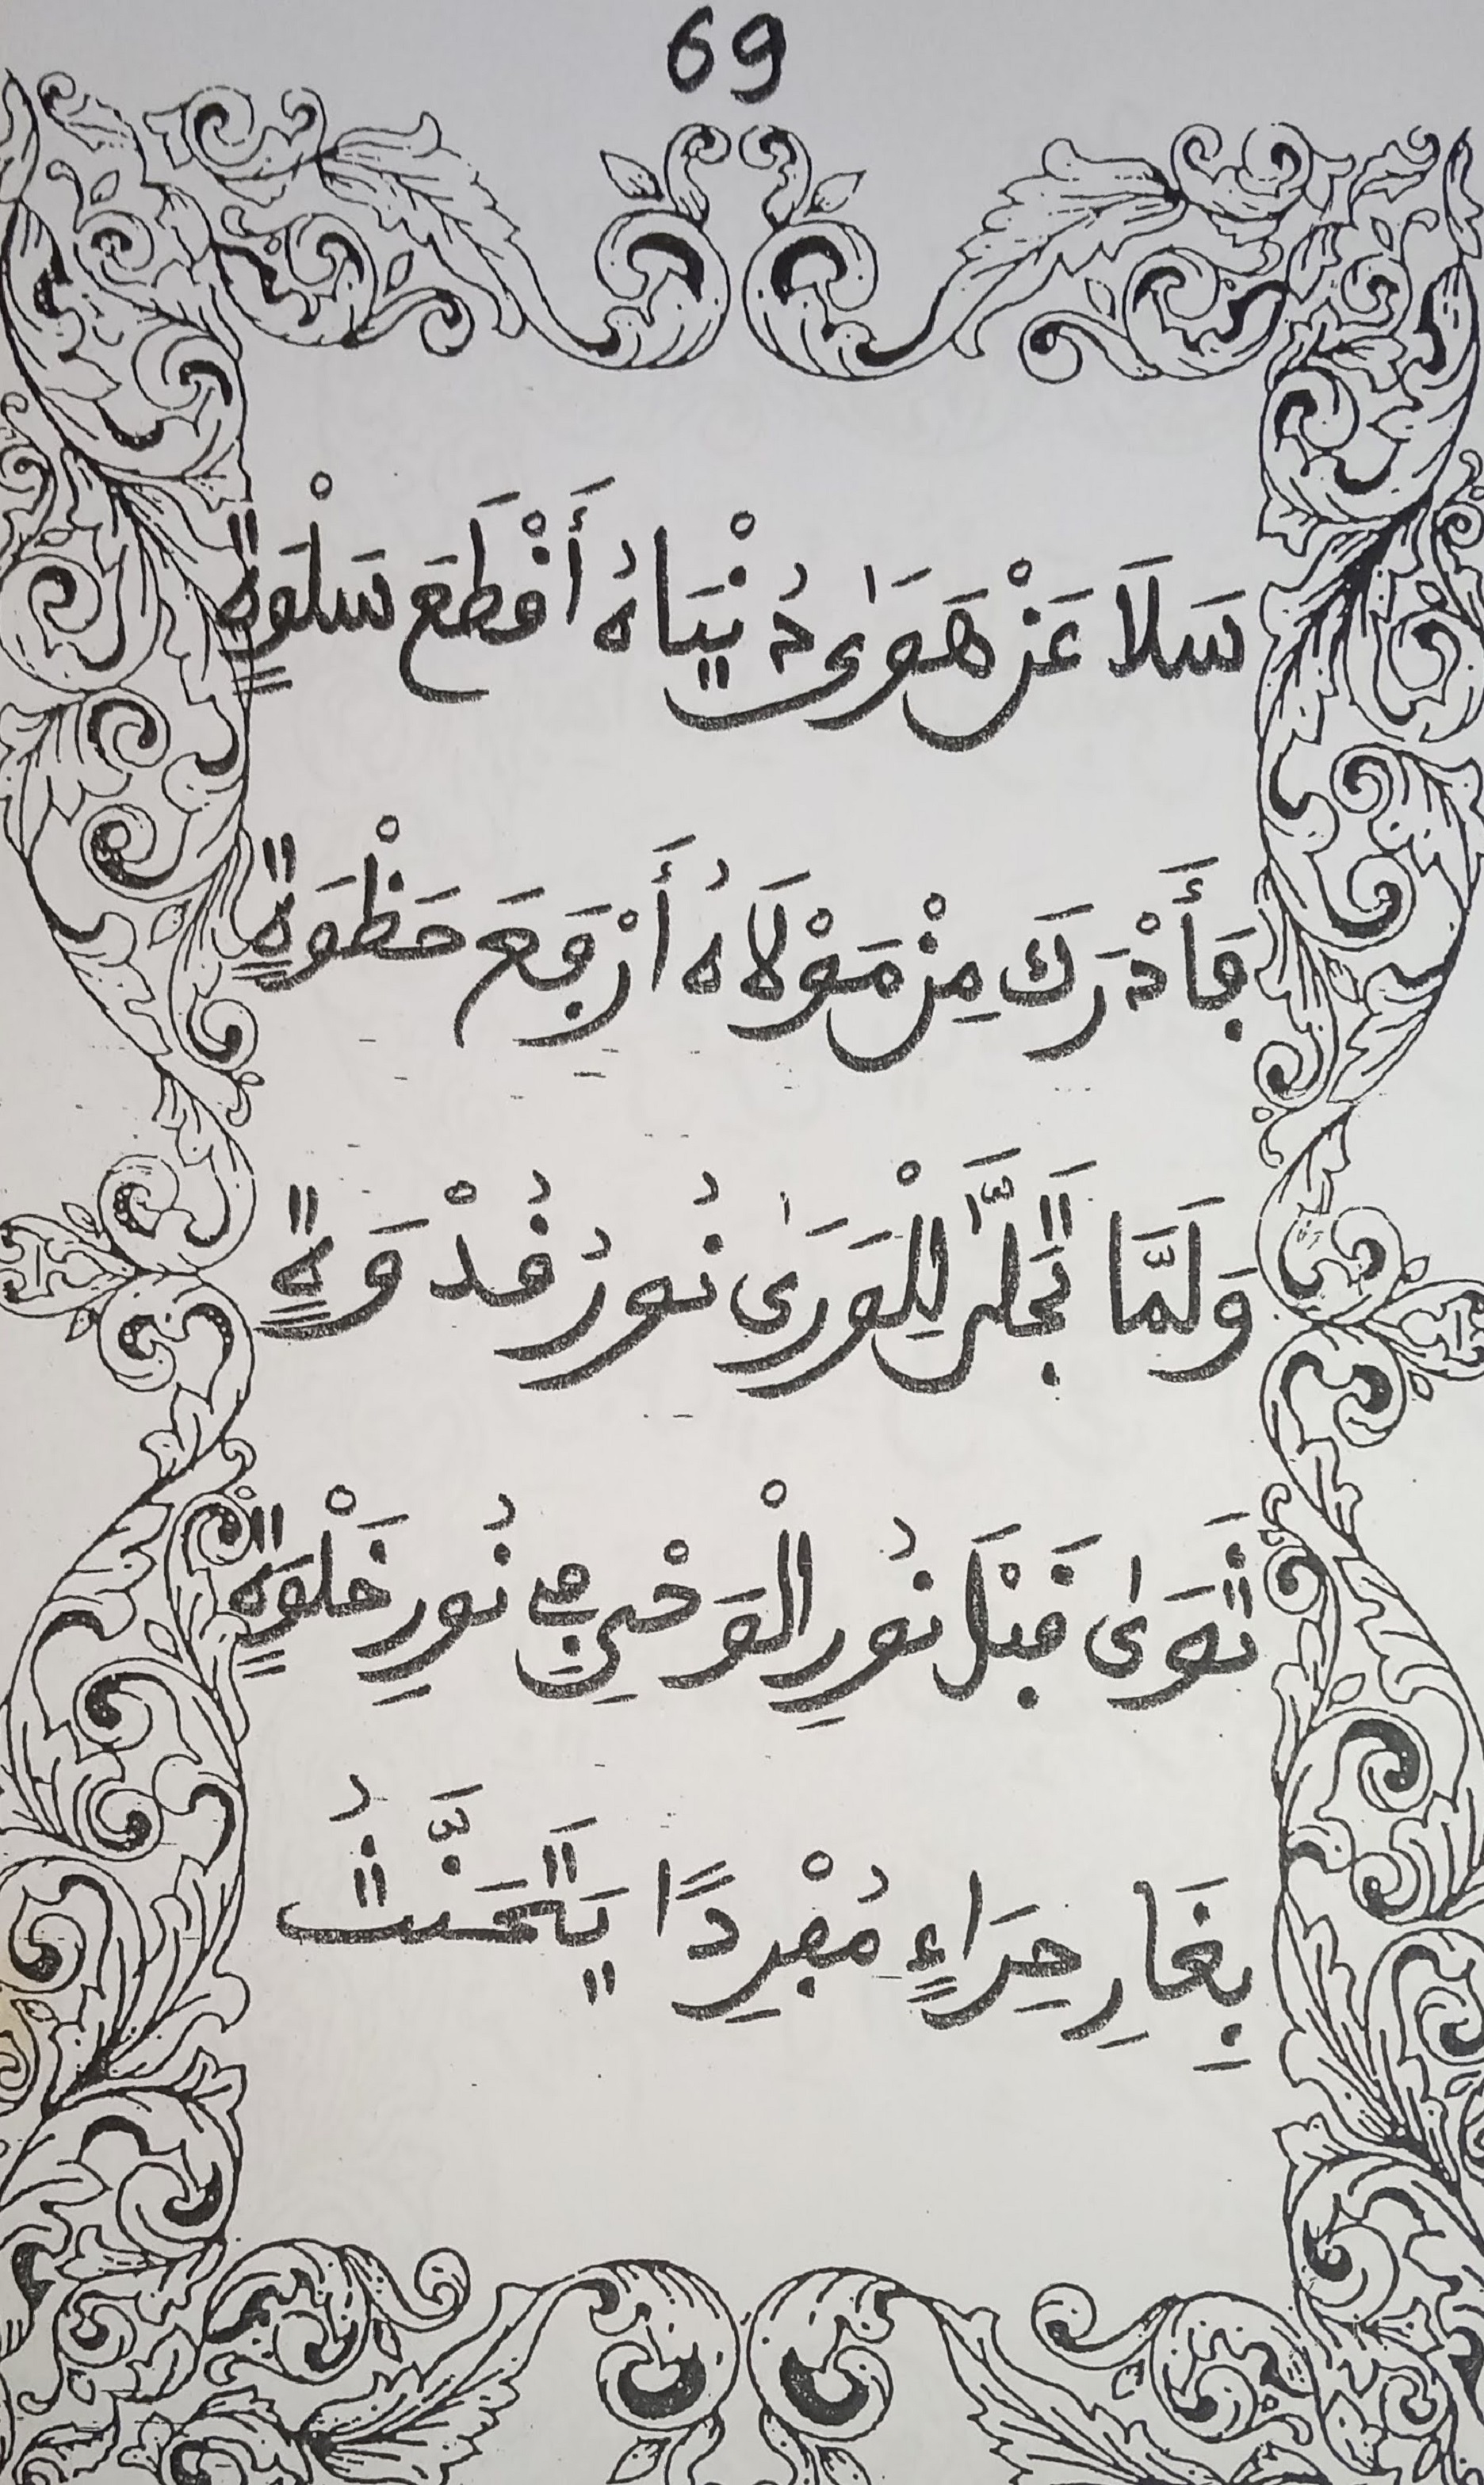 69
سَلَا عَنْ هَوَىٰ دُنْيَاهُ أَقْطَعَ سَلْوَةٍ
فَأَدْرَكَ مِنْ مَوْلَاهُ أَرْفَعَ حَظْوَةٍ
وَلَمَّا تَجَلَّىٰ لِلْوَرَىٰ نُورُ قُدْوَةٍ
ثَوَىٰ قَبْلَ نُورِ الْوَحْيِ فِي نُورِ خَلْوَةٍ
بِغَارِ حِرَاءٍ مُفْرِدًا يَتَحَنَّثُ